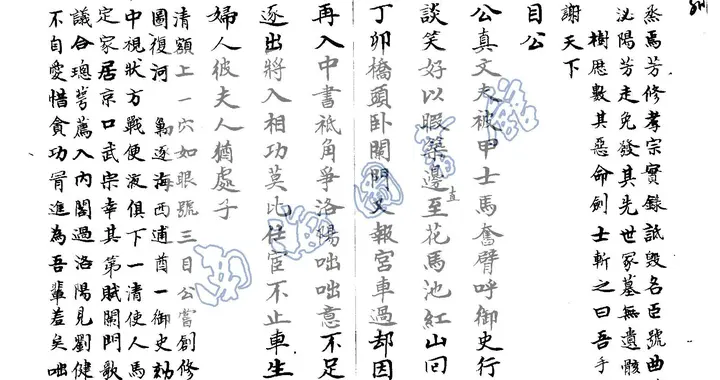 烝焉芳修孝宗實錄詆毀名臣號曲
泌陽芳走免發其先世冢墓無遺骸
樹厯數其惡命劍士斬之曰吾手
謝天下
目公
公真丈夫被甲士馬奮臂呼御史行
談笑好以暇築邊直至花馬池紅山回
丁卯橋頭卧闌門又報宮車過却因
再入中書祗角爭洛陽咄咄意不足
逐出將入相功莫比仕宦不止車生
婦人彼夫人猶處子
清額上一穴如眼號三目公嘗創修
圖復河 梟逐海西逋酋一御史劾
中視狀方戰便液俱下一清使人馬
定家居京口武宗幸其第賦闌門歌
議合璁萼薦入内閣過洛陽見劉健
不自愛惜貪功冒進為吾輩羞矣咄